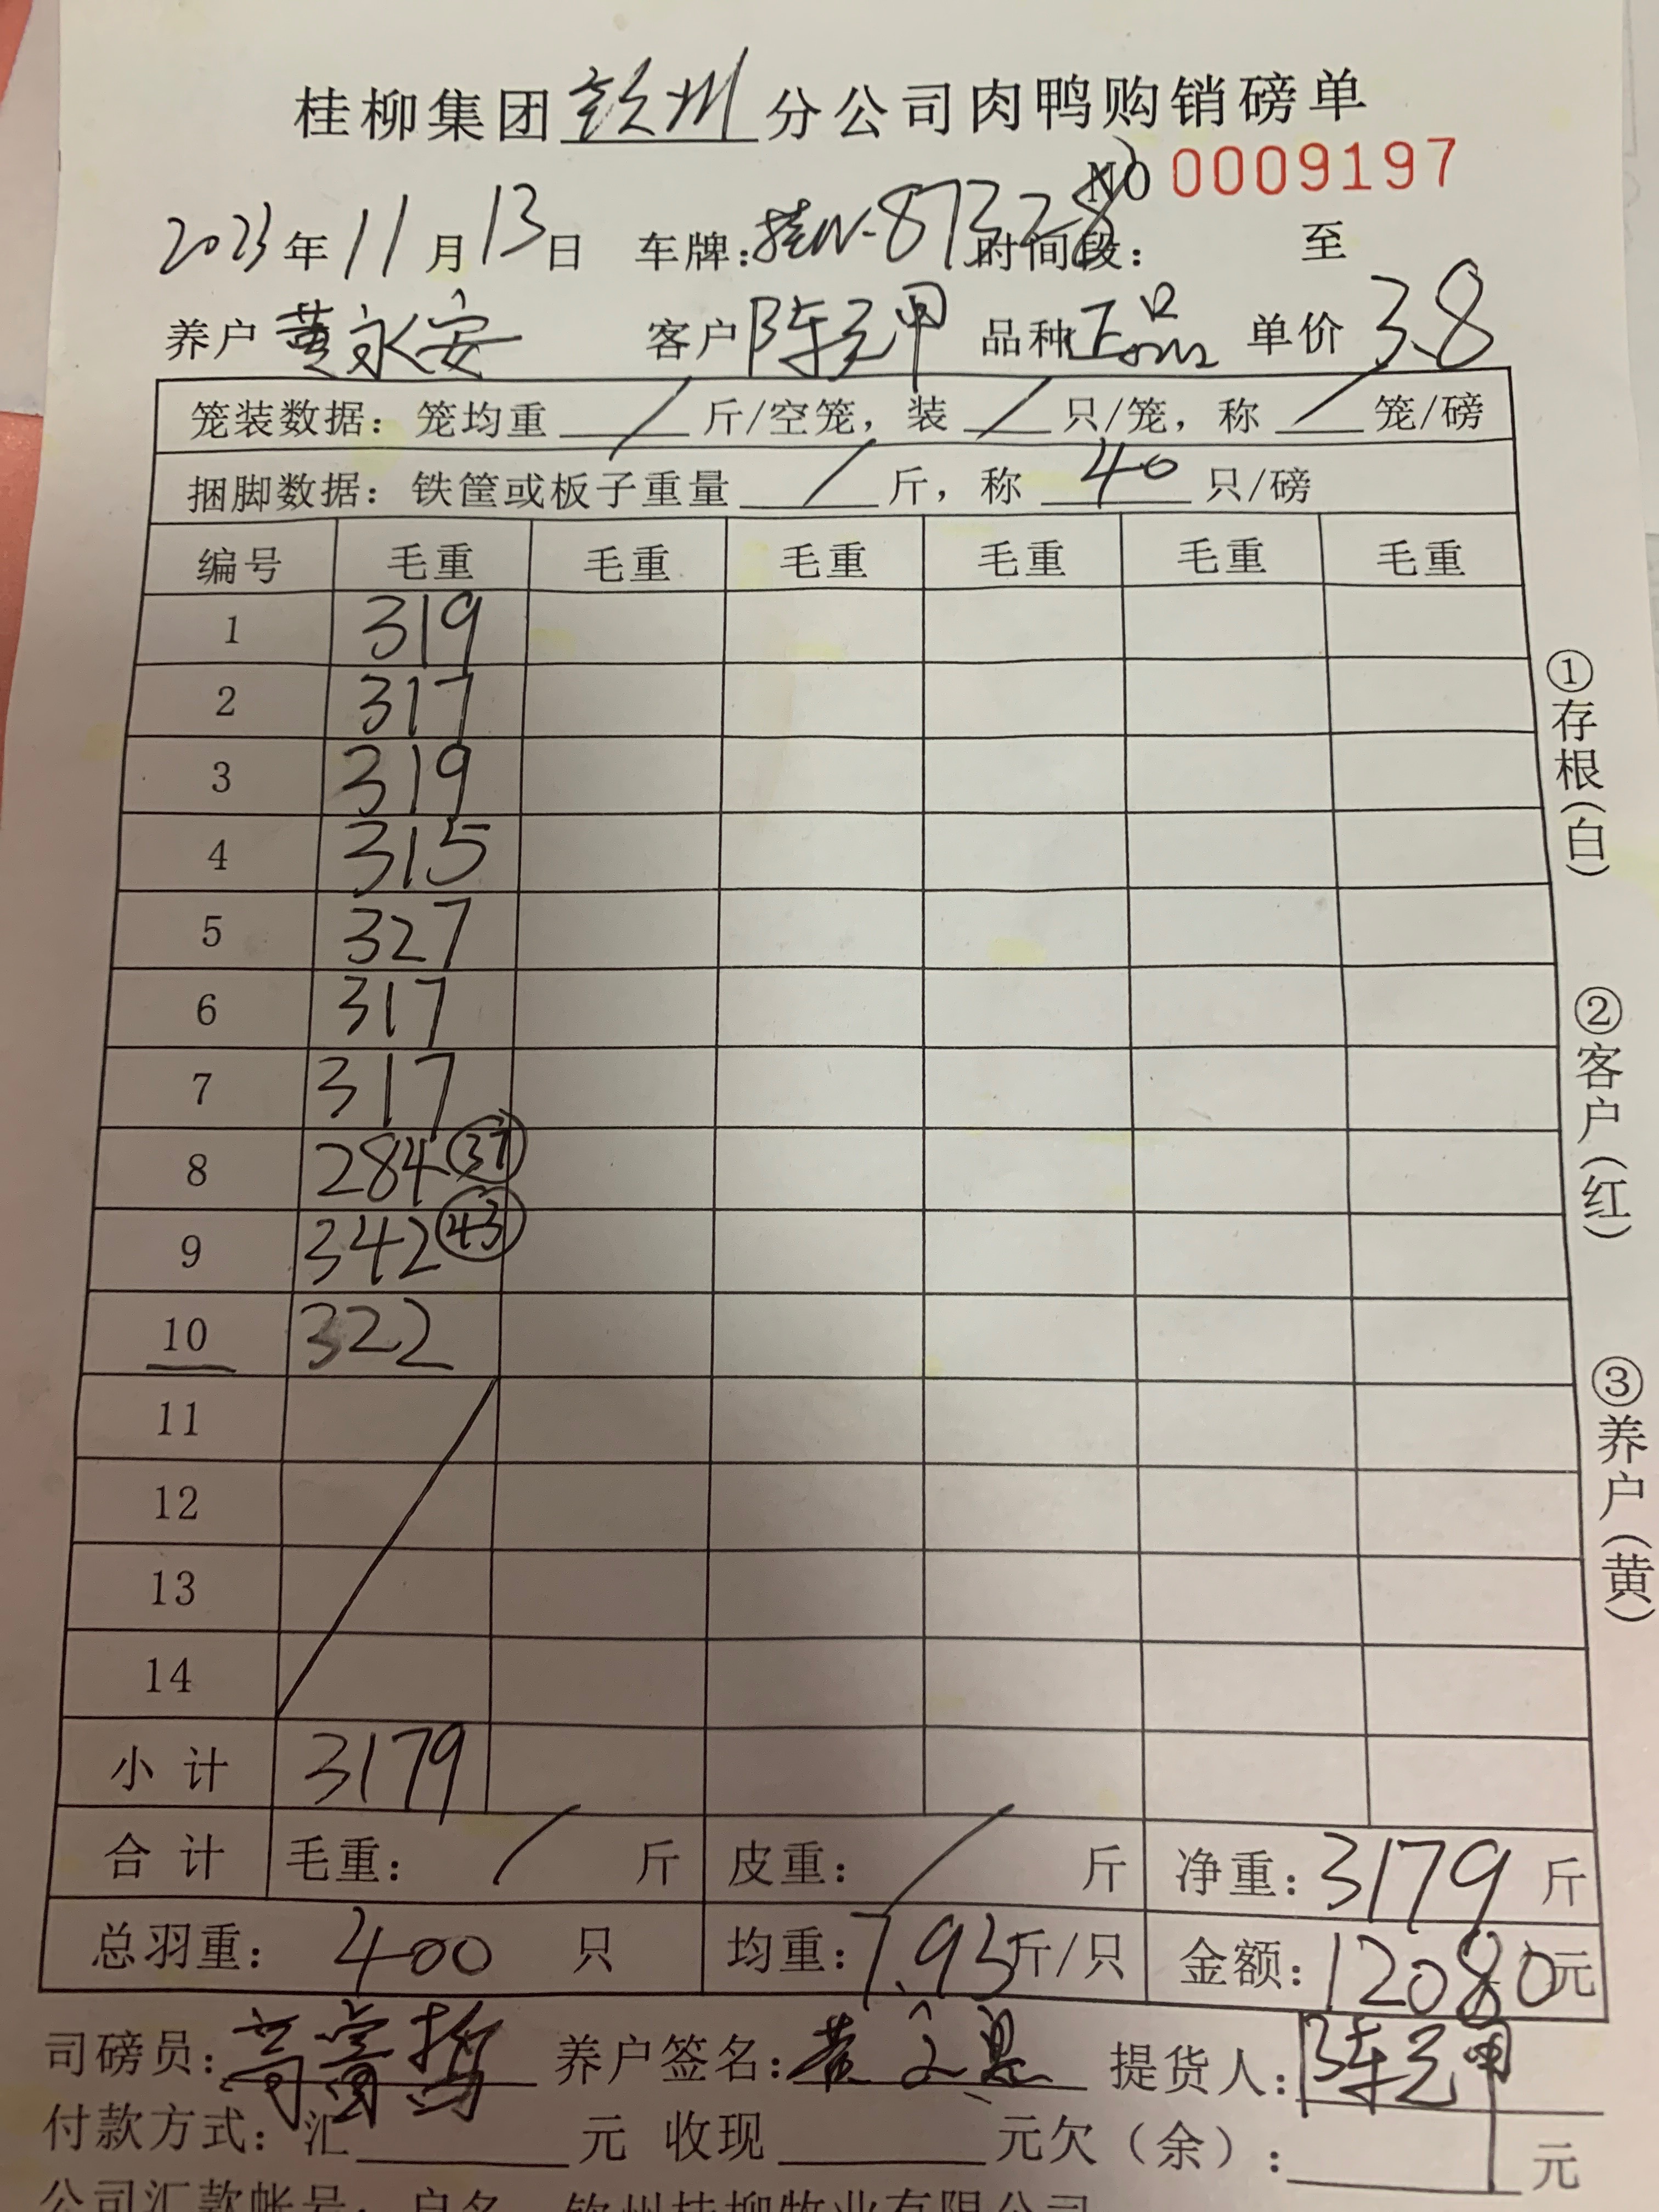 桂柳集团钦州分公司肉鸭购销磅单
No 0009197
2023年11月13日 车牌:桂N-87328 时间段: 至
养户 黄永安 客户 陈元甲 品种 正品 单价 3.8
笼装数据: 笼均重 / 斤/空笼, 装 / 只/笼, 称 / 笼/磅
捆脚数据: 铁筐或板子重量 / 斤, 称 40 只/磅
编号 毛重 毛重 毛重 毛重 毛重 毛重
1 319
2 317
3 319
4 315
5 327
6 317
7 317
8 284 37
9 342 43
10 322
11
12
13
14
小计 3179
合计 毛重: / 斤 皮重: / 斤 净重: 3179 斤
总羽重: 400 只 均重: 7.95斤/只 金额: 12080元
司磅员: 养户签名: 黄 提货人: 陈元甲
付款方式: 汇 元 收现 元欠(余): 元
公司汇款帐号: 户名 钦州桂柳牧业有限公司
①存根(白)
②客户(红)
③养户(黄)